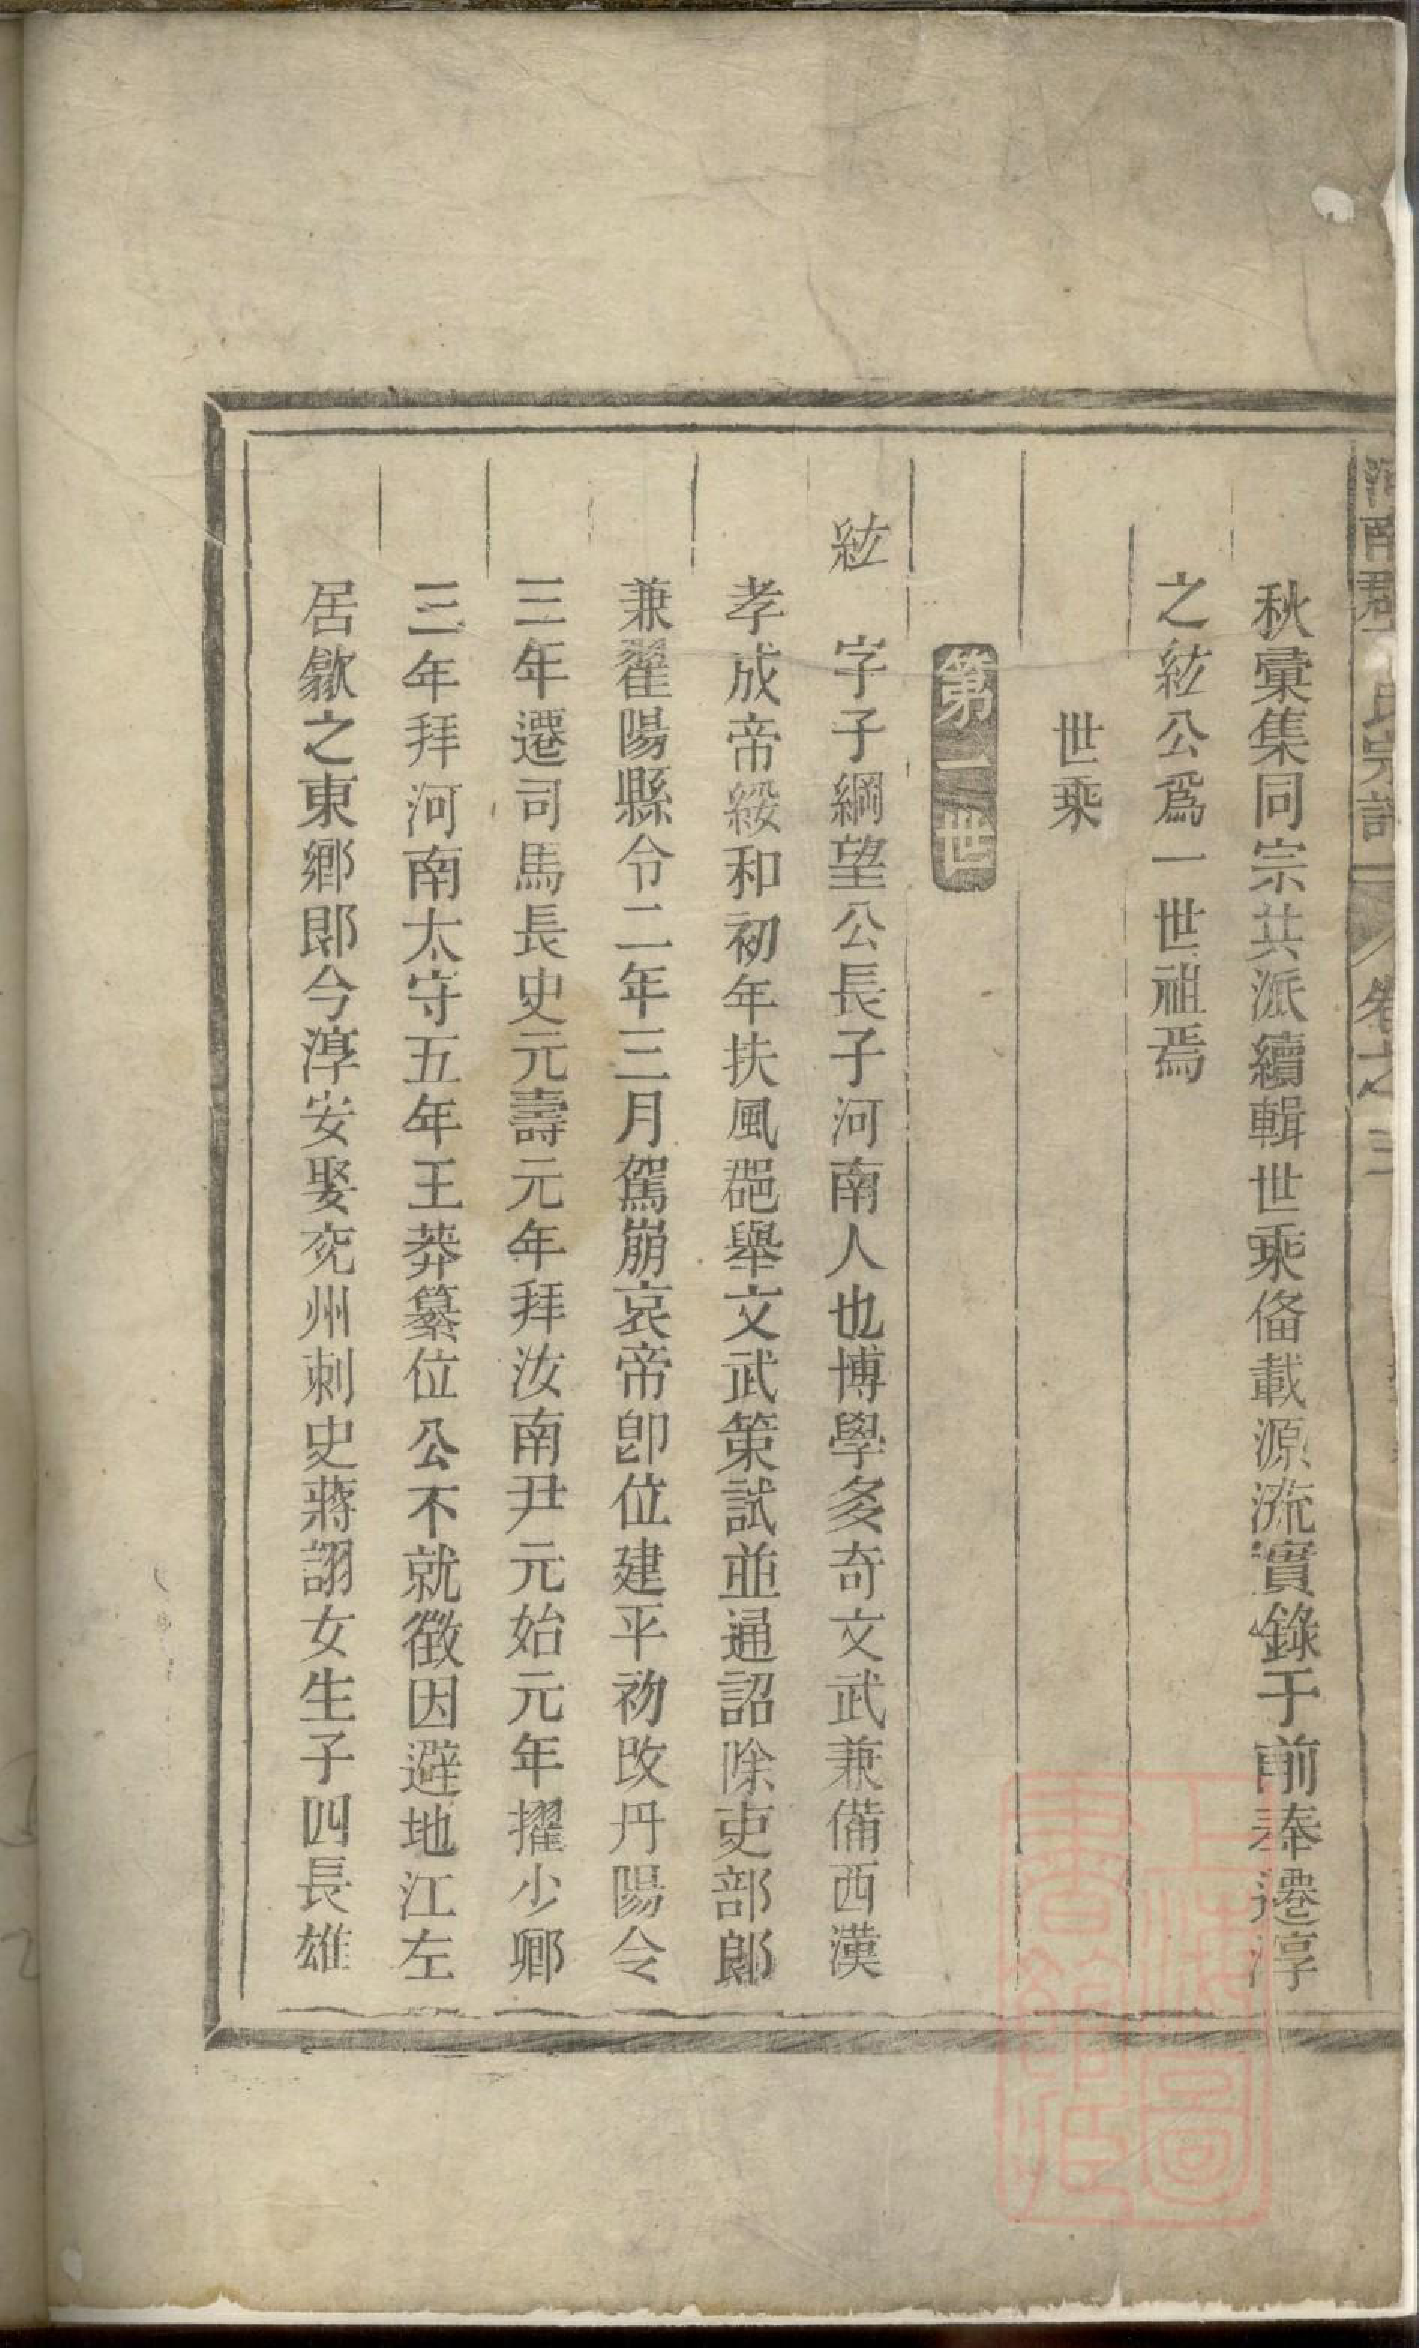 秋彙集同宗共派續輯世乘俻載源流實錄于前奉遷淳
之紘公爲一世祖焉
世乘
第一世
紘 字子綱望公長子河南人也博學多奇文武兼備西漢
孝成帝綏和初年扶風郡舉文武策試並通詔除吏部郎
兼翟陽縣令二年三月駕崩哀帝卽位建平初改丹陽令
三年遷司馬長史元壽元年拜汝南尹元始元年擢少卿
三年拜河南太守五年王莽篡位公不就徵因避地江左
居歙之東鄉即今淳安娶兖州刺史蔣詡女生子四長雄
卷之三
上海圖書館藏